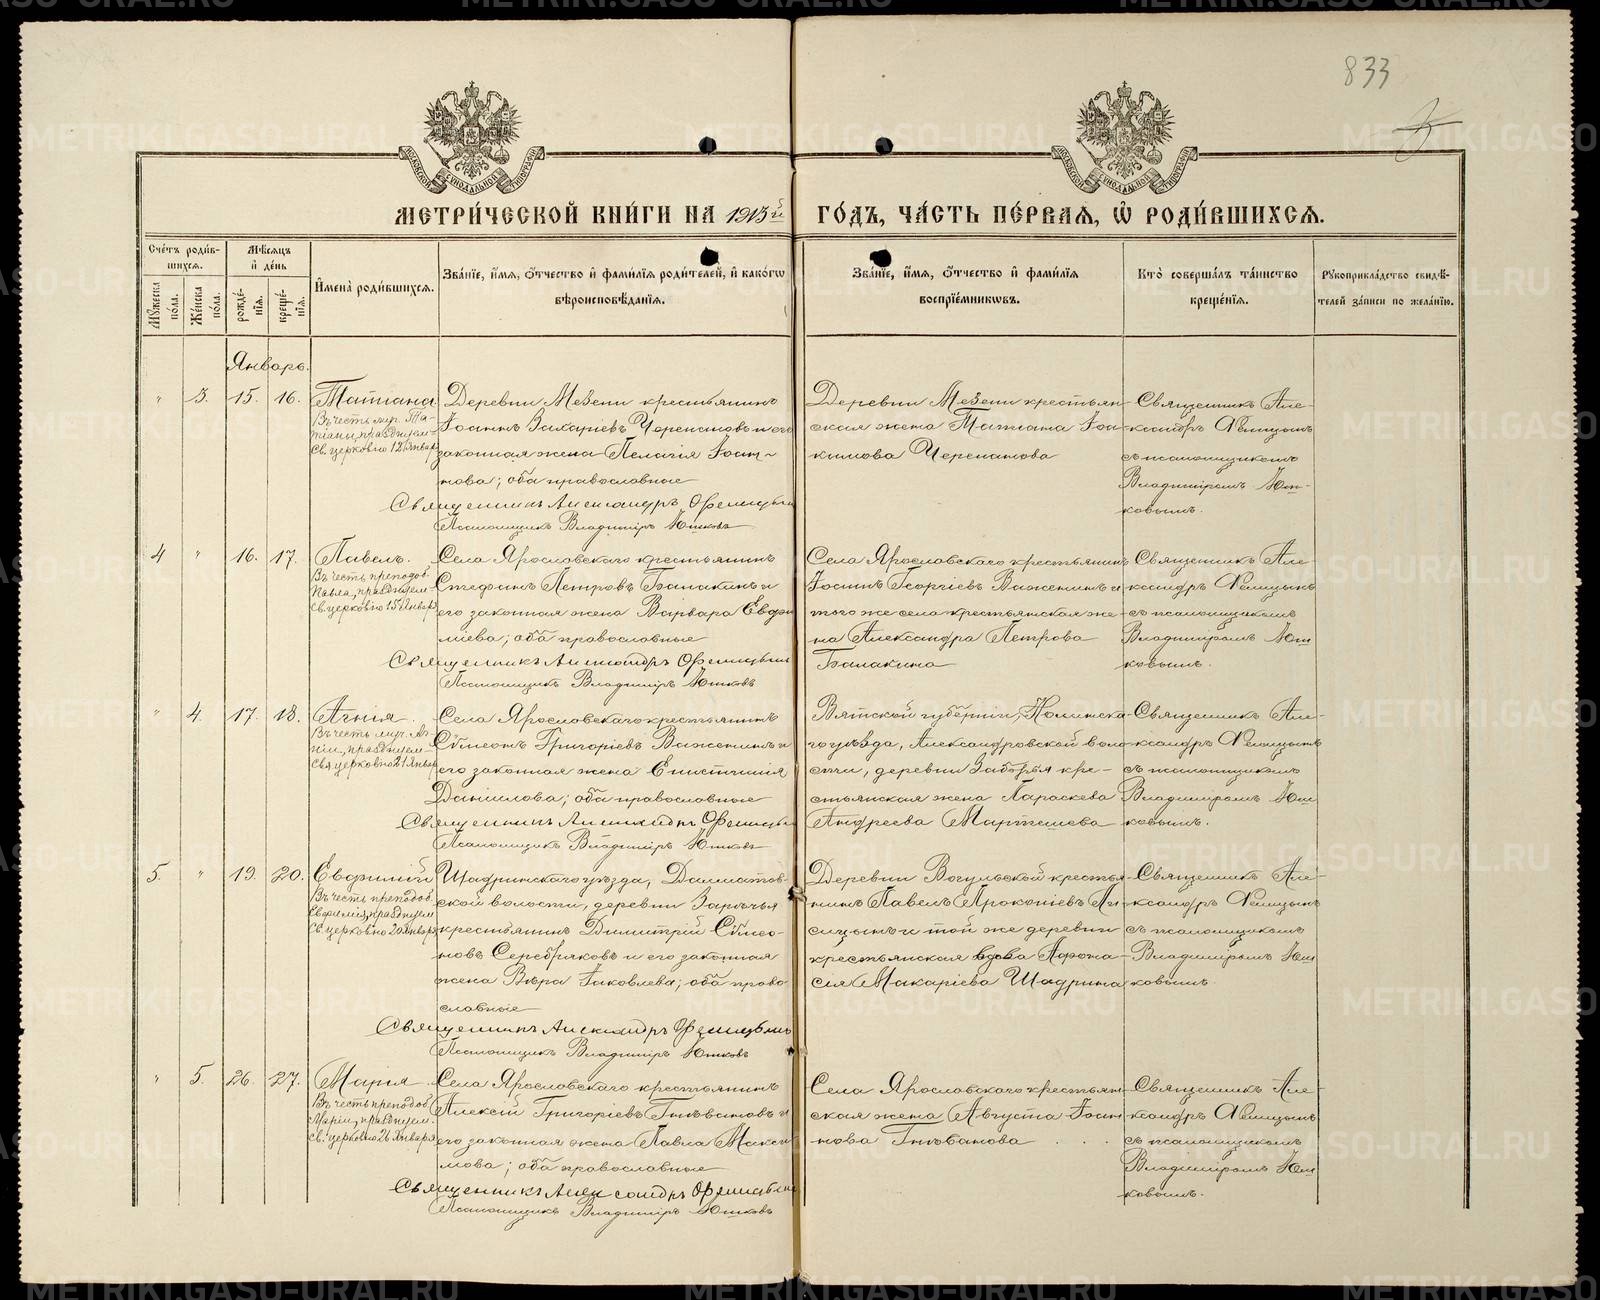 833
МОСКОВСКОЙ СѴНОДАЛЬНОЙ ТИПОГРАФІИ
МОСКОВСКОЙ СѴНОДАЛЬНОЙ ТИПОГРАФІИ
МЕТРИ́ЧЕСКОЙ КНИ́ГИ НА 1913й ГО́ДЪ, ЧА́СТЬ ПЕ́РВАѦ, Ѡ҆ РОДИ́ВШИХСѦ.
Сче́тъ роди́в-
шихсѧ.
Мꙋжеска по́ла.
Же́нска по́ла.
Мѣ́сѧцъ
и҆ де́нь
рожде́-
нїѧ.
креще́-
нїѧ.
И҆мена̀ роди́вшихсѧ.
Зва́нїе, и҆́мѧ, ѻ҆́тчество и҆ фами́лїѧ роди́телей, и҆ како́гѡ
вѣроисповѣ́данїѧ.
Зва́нїе, и҆́мѧ, ѻ҆́тчество и҆ фами́лїѧ
воспрїе́мникѡвъ.
Кто̀ соверша́лъ та́инство
креще́нїѧ.
Рꙋкоприкла́дство свидѣ́-
телей за́писи по жела́нїю.
Январь.
" 3. 15. 16.
Татіана
Въ честь муч. Та-
тіаны, празднуем-
св. церковію 12 января
Деревни Мезени крестьянинъ
Іоаннъ Захаріевъ Черепановъ и его
законная жена Пелагія Іоан-
нова; оба православные
Священникъ Александръ Флицынъ
Псаломщикъ Владиміръ Юшковъ
Деревни Мезени крестьян-
ская жена Татіана Іоа-
кимова Черепанова
Священникъ Але-
ксандръ
съ псаломщикомъ
Владиміромъ Юш-
ковымъ.
4 " 16. 17.
Павелъ.
Въ честь преподоб.
Павла, празднуем-
св. церковію 15 января
Села Ярославскаго крестьянинъ
Стефанъ Петровъ Балакинъ и
его законная жена Варвара Евфи
міева; оба православные
Священникъ Александръ
Псаломщикъ Владиміръ Юшковъ
Села Ярославскаго крестьянинъ
Іоаннъ Георгіевъ Важенинъ и
того же села крестьянская же-
на Александра Петрова
Балакина
Священникъ Але
ксандръ
съ псаломщикомъ
Владиміромъ Юш
ковымъ.
" 4. 17. 18.
Агнія.
Въ честь муч. Аг-
ніи, празднуем-
свя церковію 21 январ
Села Ярославскаго крестьянинъ
Сѵмеонъ Григоріевъ Важенинъ и
его законная жена Епистимія
Даніилова; оба православные
Священникъ Александръ
Псаломщикъ Владиміръ Юшковъ
Вятской губерніи, Нолинска-
го уѣзда, Александровской воло-
сти, деревни Заборья кре-
стьянская жена Параскева
Андреева Мартешева
Священникъ Але-
ксандръ
съ псаломщикомъ
Владиміромъ Юш
ковымъ.
5. " 19. 20.
Евфимій
Въ честь преподоб.
Евфимія, празднуем
св. церковію 20 января
Шадринскаго уѣзда, Далматов-
ской волости, деревни Зарѣчья
крестьянинъ Димитрій Сѵмео-
новъ Серебряковъ и его законная
жена Вѣра Іаковлева; оба право-
славные
Священникъ Александръ
Псаломщикъ Владиміръ Юшковъ
Деревни Вогульской крестья-
нинъ Павелъ Прокопіевъ Ли-
сицынъ и той же деревни
крестьянская вдова Афона-
сія Макаріева Шадрина
Священникъ Але-
ксандръ
съ псаломщикомъ
Владиміромъ Юш
ковымъ.
" 5. 26. 27.
Марія
Въ честь преподоб
Маріи, празднуем.
св. церковію 26 января
Села Ярославскаго крестьянинъ
Алексій Григоріевъ Гнѣвановъ и
его законная жена Павла Макси
мова; оба православные
Священникъ Александръ
Псаломщикъ Владиміръ Юшковъ
Села Ярославскаго крестьян-
ская жена Августа Іоан-
нова Гнѣванова
Священникъ Але-
ксандръ
съ псаломщикомъ
Владиміромъ Юш
ковымъ.
METRIKI.GASO-URAL.RU